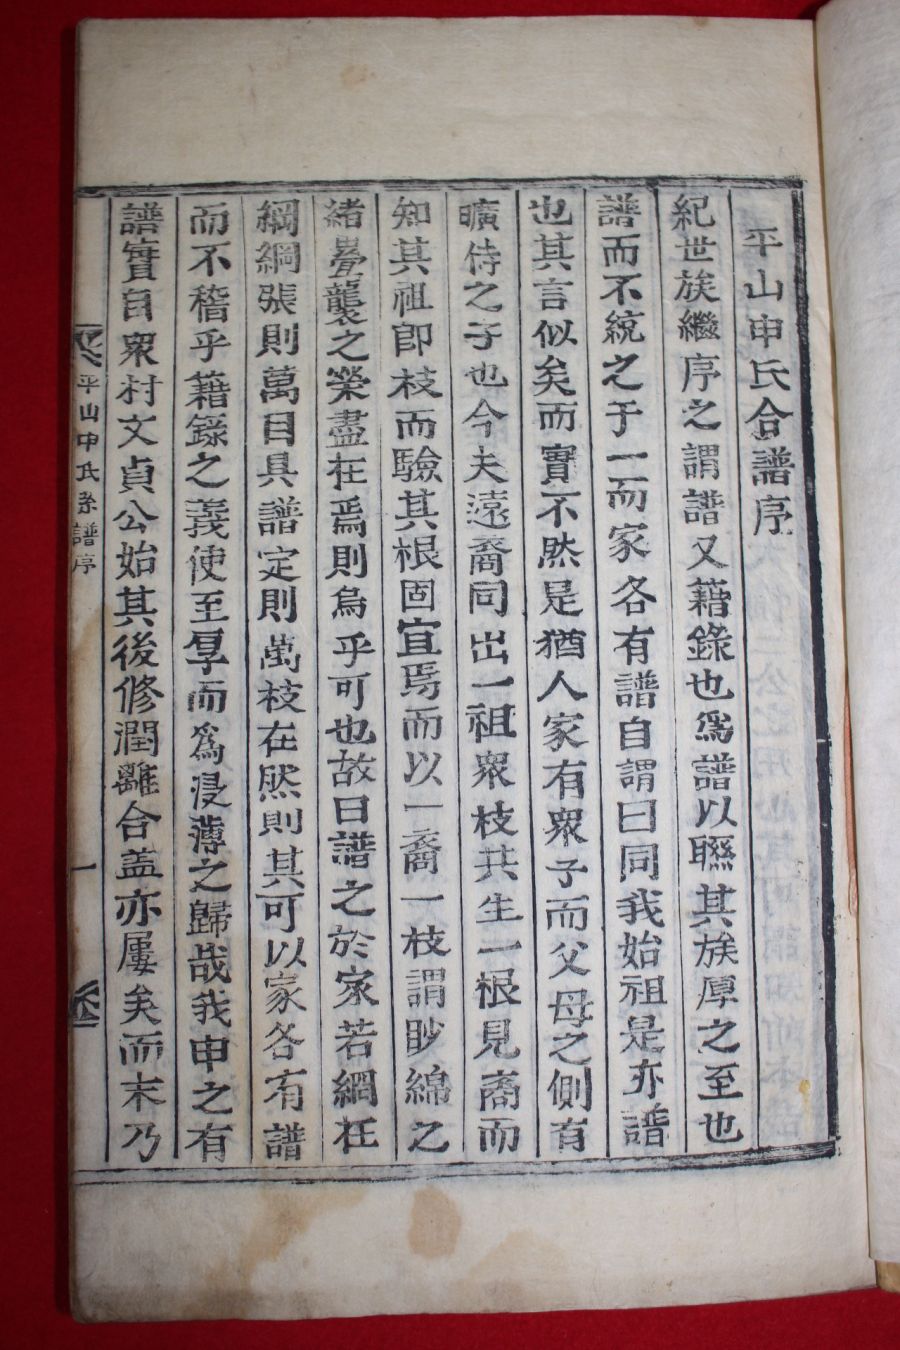 平山申氏合譜序
紀世族繼序之謂譜又籍錄也爲譜以聮其族厚之至也
譜而不統之于一而家各有譜自謂曰同我始祖是亦譜
也其言似矣而實不然是猶人家有衆子而父母之側有
曠侍之子也今夫遠裔同出一祖衆枝共生一根見裔而
知其祖卽枝而驗其根固宜焉而以一裔一枝謂眇綿之
緖疊襲之榮盡在焉則烏乎可也故曰譜之於家若網在
綱綱張則萬目具譜定則萬枝在然則其可以家各有譜
而不稽乎籍錄之義使至厚而爲浸薄之歸哉我申之有
譜實自衆村文貞公始其後修潤離合盖亦屢矣而末乃
平山申氏系譜序
一